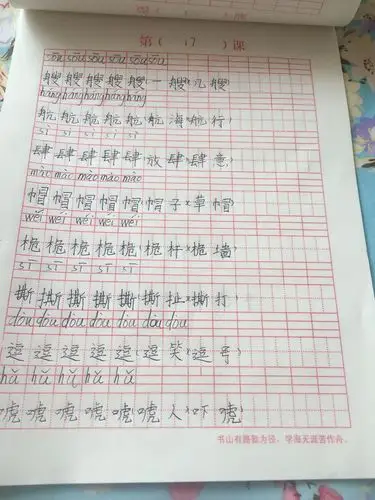 第（ 17 ）课
sōu sōu sōu sōu sōu sōu
艘艘艘艘艘(一艘)(几艘)
háng háng háng háng háng
航航航航航(航海)(航行)
sì sì sì sì sì
肆肆肆肆肆(放肆)(肆意)
mào mào mào mào mào
帽帽帽帽帽(帽子)(草帽)
wéi wéi wéi wéi wéi
桅桅桅桅桅(桅杆)(桅墙)
sī sī sī sī sī
撕撕撕撕撕(撕扯)(撕打)
dòu dòu dòu dòu dòu dòu dòu
逗逗逗逗逗(逗笑)(逗号)
hǔ hǔ hǔ hǔ hǔ
唬唬唬唬唬(唬人)(吓唬)
书山有路勤为径，学海无涯苦作舟。